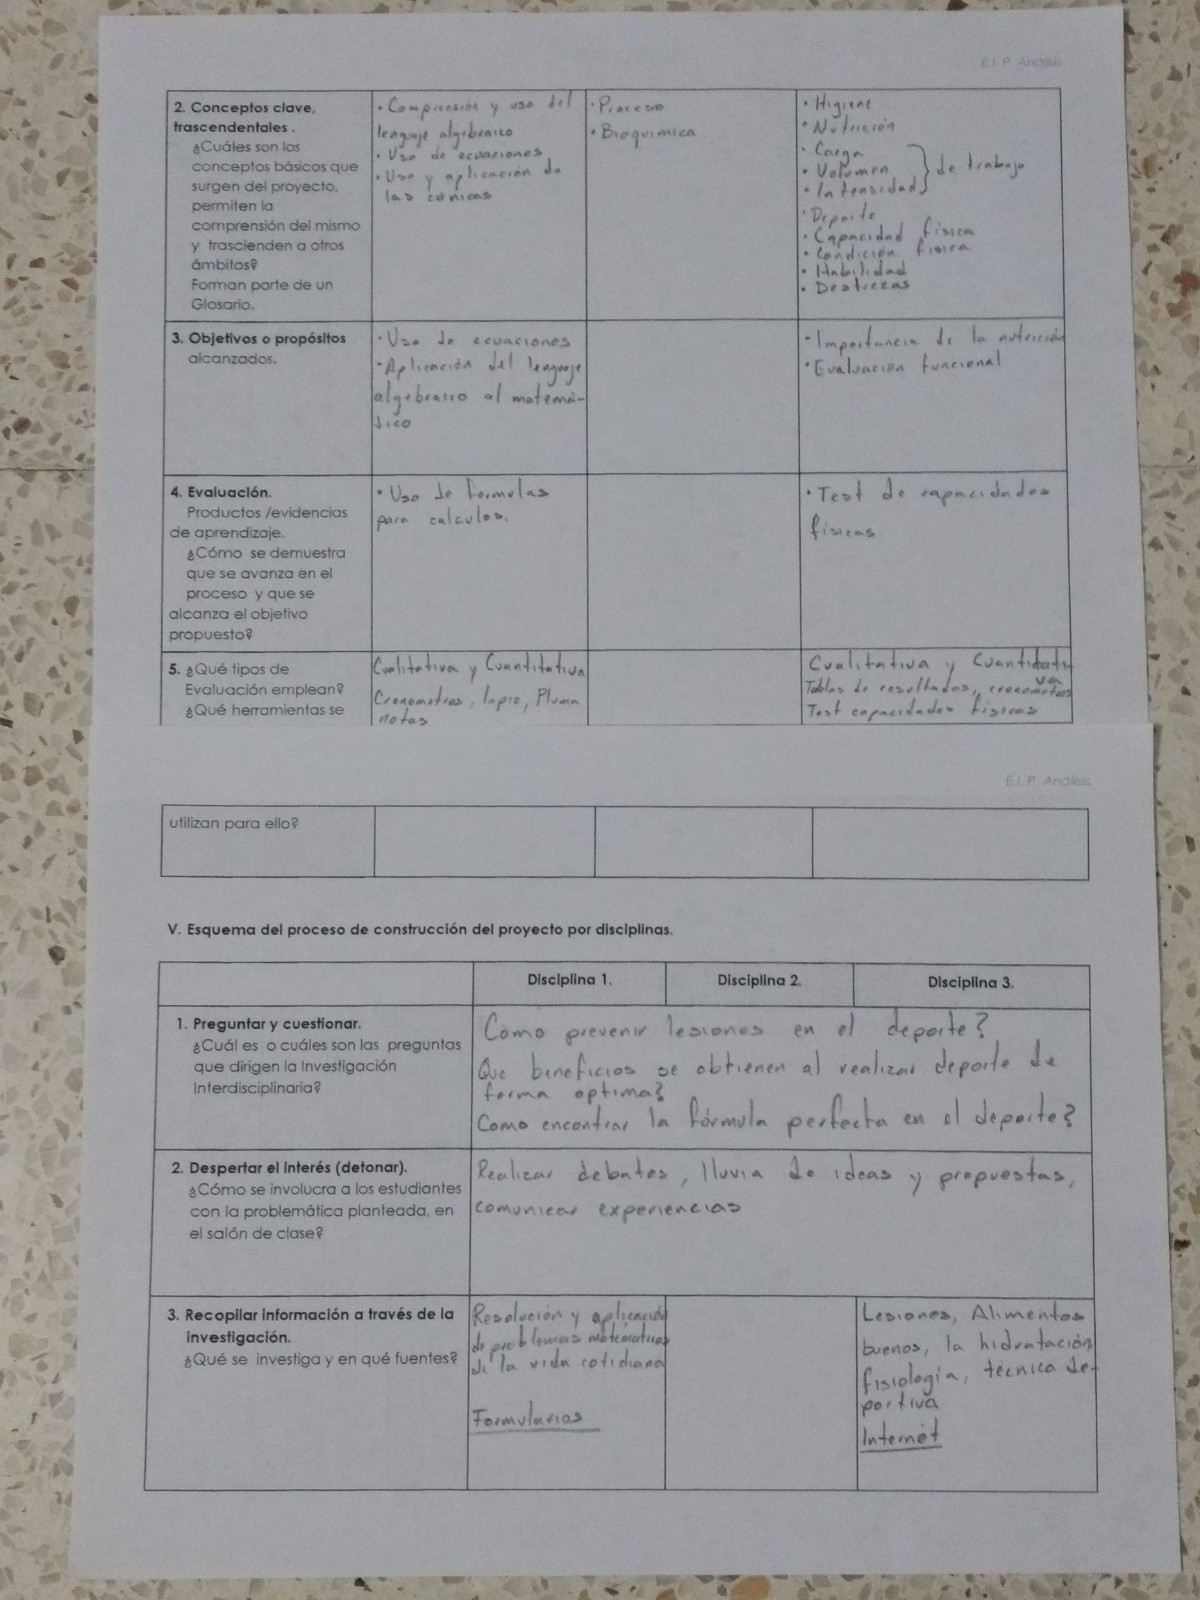 E.I. P. Análisis
2. Conceptos clave,
trascendentales .
¿Cuáles son los
conceptos básicos que
surgen del proyecto,
permiten la
comprensión del mismo
y trascienden a otros
ámbitos?
Forman parte de un
Glosario.
• Comprensión y uso del
lenguaje algebraico
• Uso de ecuaciones
• Uso y aplicación de
las cónicas
• Proceso
• Bioquimica
• Higiene
• Nutrición
• Carga
• Volumen
• Intensidad
} de trabajo
• Deporte
• Capacidad física
• Condición física
• Habilidad
• Destrezas
3. Objetivos o propósitos
alcanzados.
• Uso de ecuaciones
• Aplicación del lenguaje
algebraico al matemá-
tico
• Importancia de la nutrición
• Evaluación funcional
4. Evaluación.
Productos /evidencias
de aprendizaje.
¿Cómo se demuestra
que se avanza en el
proceso y que se
alcanza el objetivo
propuesto?
• Uso de formulas
para calculos.
• Test de capacidades
físicas
5. ¿Qué tipos de
Evaluación emplean?
¿Qué herramientas se
Cualitativa y Cuantitativa
Cronometros, lapiz, Pluma
notas
Cualitativa y Cuantitati
va
Tablas de resultados, cronometros
Test capacidades físicas
E.I. P. Análisis
utilizan para ello?
V. Esquema del proceso de construcción del proyecto por disciplinas.
Disciplina 1.
Disciplina 2.
Disciplina 3.
1. Preguntar y cuestionar.
¿Cuál es o cuáles son las preguntas
que dirigen la Investigación
Interdisciplinaria?
Como prevenir lesiones en el deporte?
Que beneficios se obtienen al realizar deporte de
forma optima?
Como encontrar la fórmula perfecta en el deporte?
2. Despertar el interés (detonar).
¿Cómo se involucra a los estudiantes
con la problemática planteada, en
el salón de clase?
Realizar debates, lluvia de ideas y propuestas,
comunicar experiencias
3. Recopilar información a través de la
investigación.
¿Qué se investiga y en qué fuentes?
Resolución y aplicación
de problemas matematicos
de la vida cotidiana
Formularios
Lesiones, Alimentos
buenos, la hidratación
fisiología, técnica de-
portiva
Internet